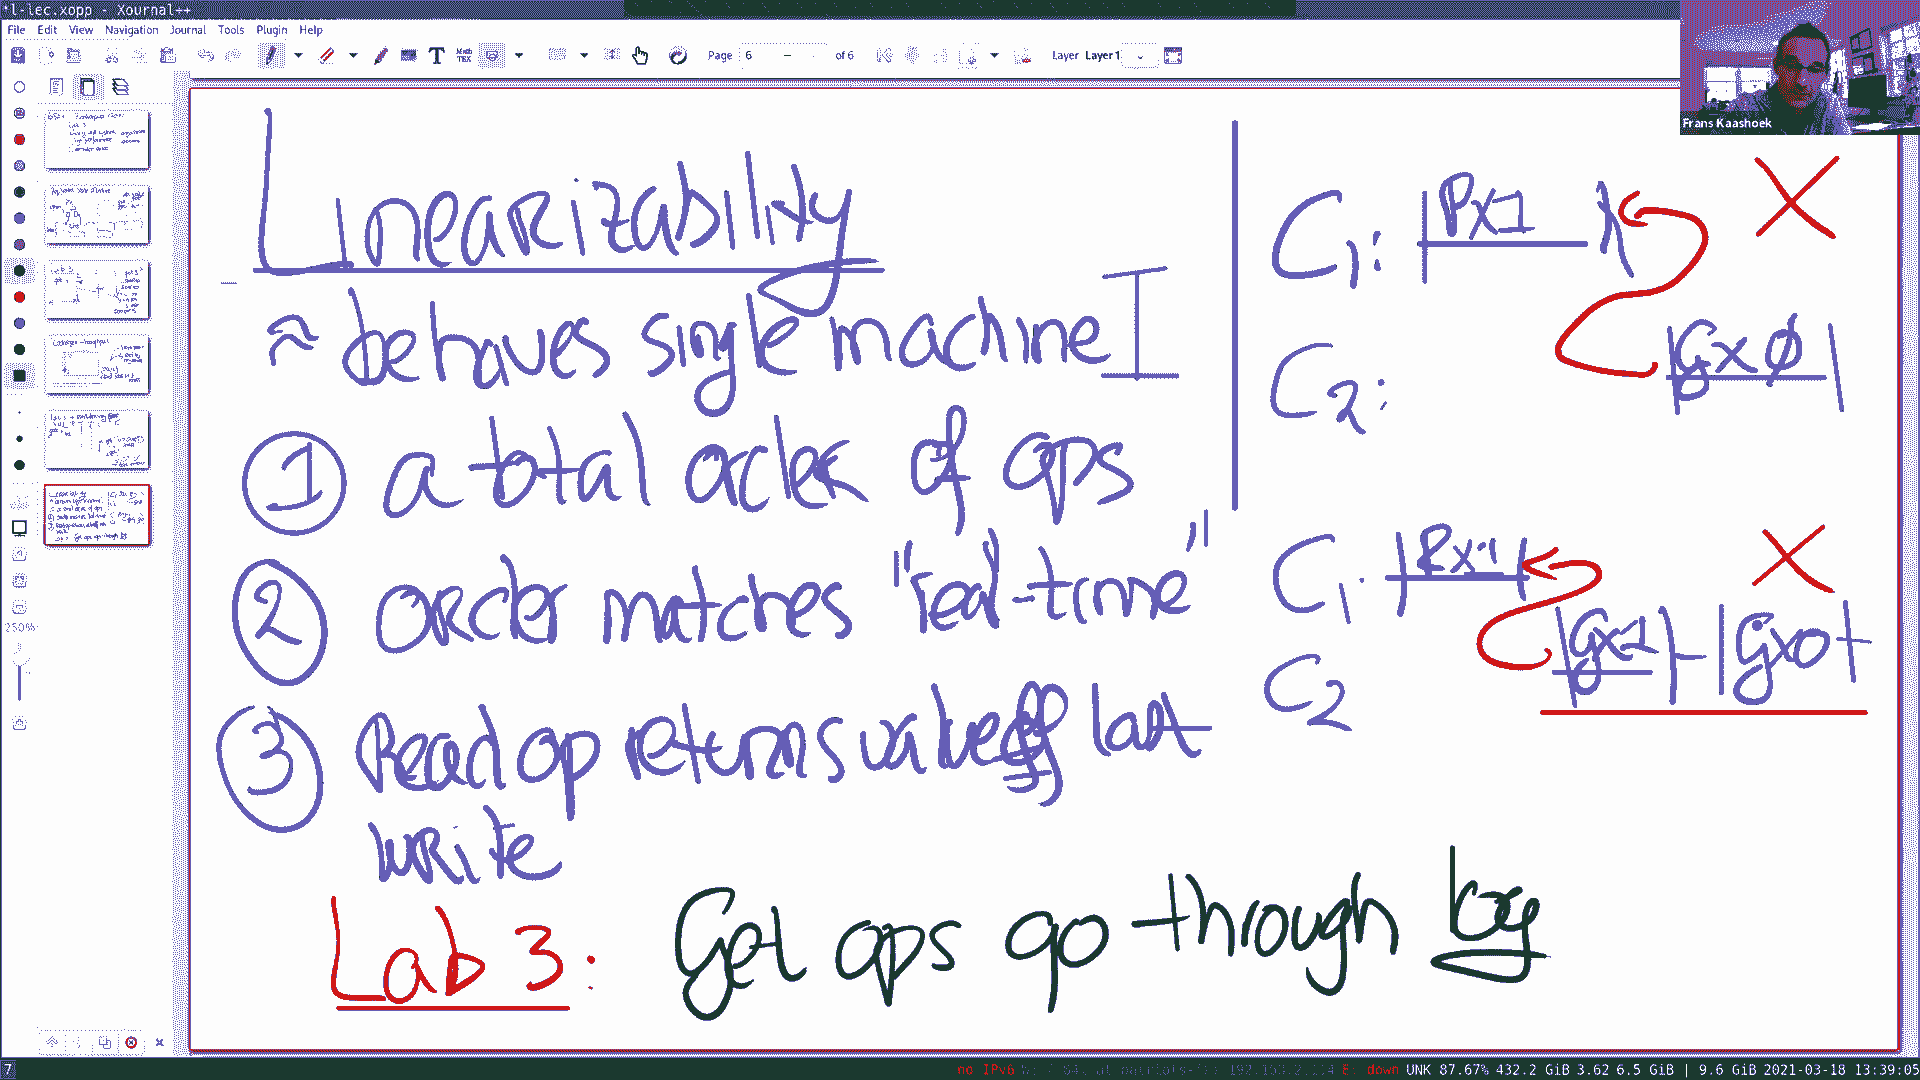 *l-lec.xopp - Xournal++
File Edit View Navigation Journal Tools Plugin Help
Page 6 of 6 Layer Layer1
Frans Kaashoek
Linearizability
≈ behaves single machine
① a total order of ops
② order matches "real-time"
③ Read op returns value of last
write
Lab 3: Get ops go through log
C1: |Px1
C2: |Gx0|
C1 |Rx1|
C2 |Gx1| |Gx0|
250%
7
no IPv6 down UNK 87.67% 432.2 GiB 3.62 6.5 GiB | 9.6 GiB 2021-03-18 13:39:05